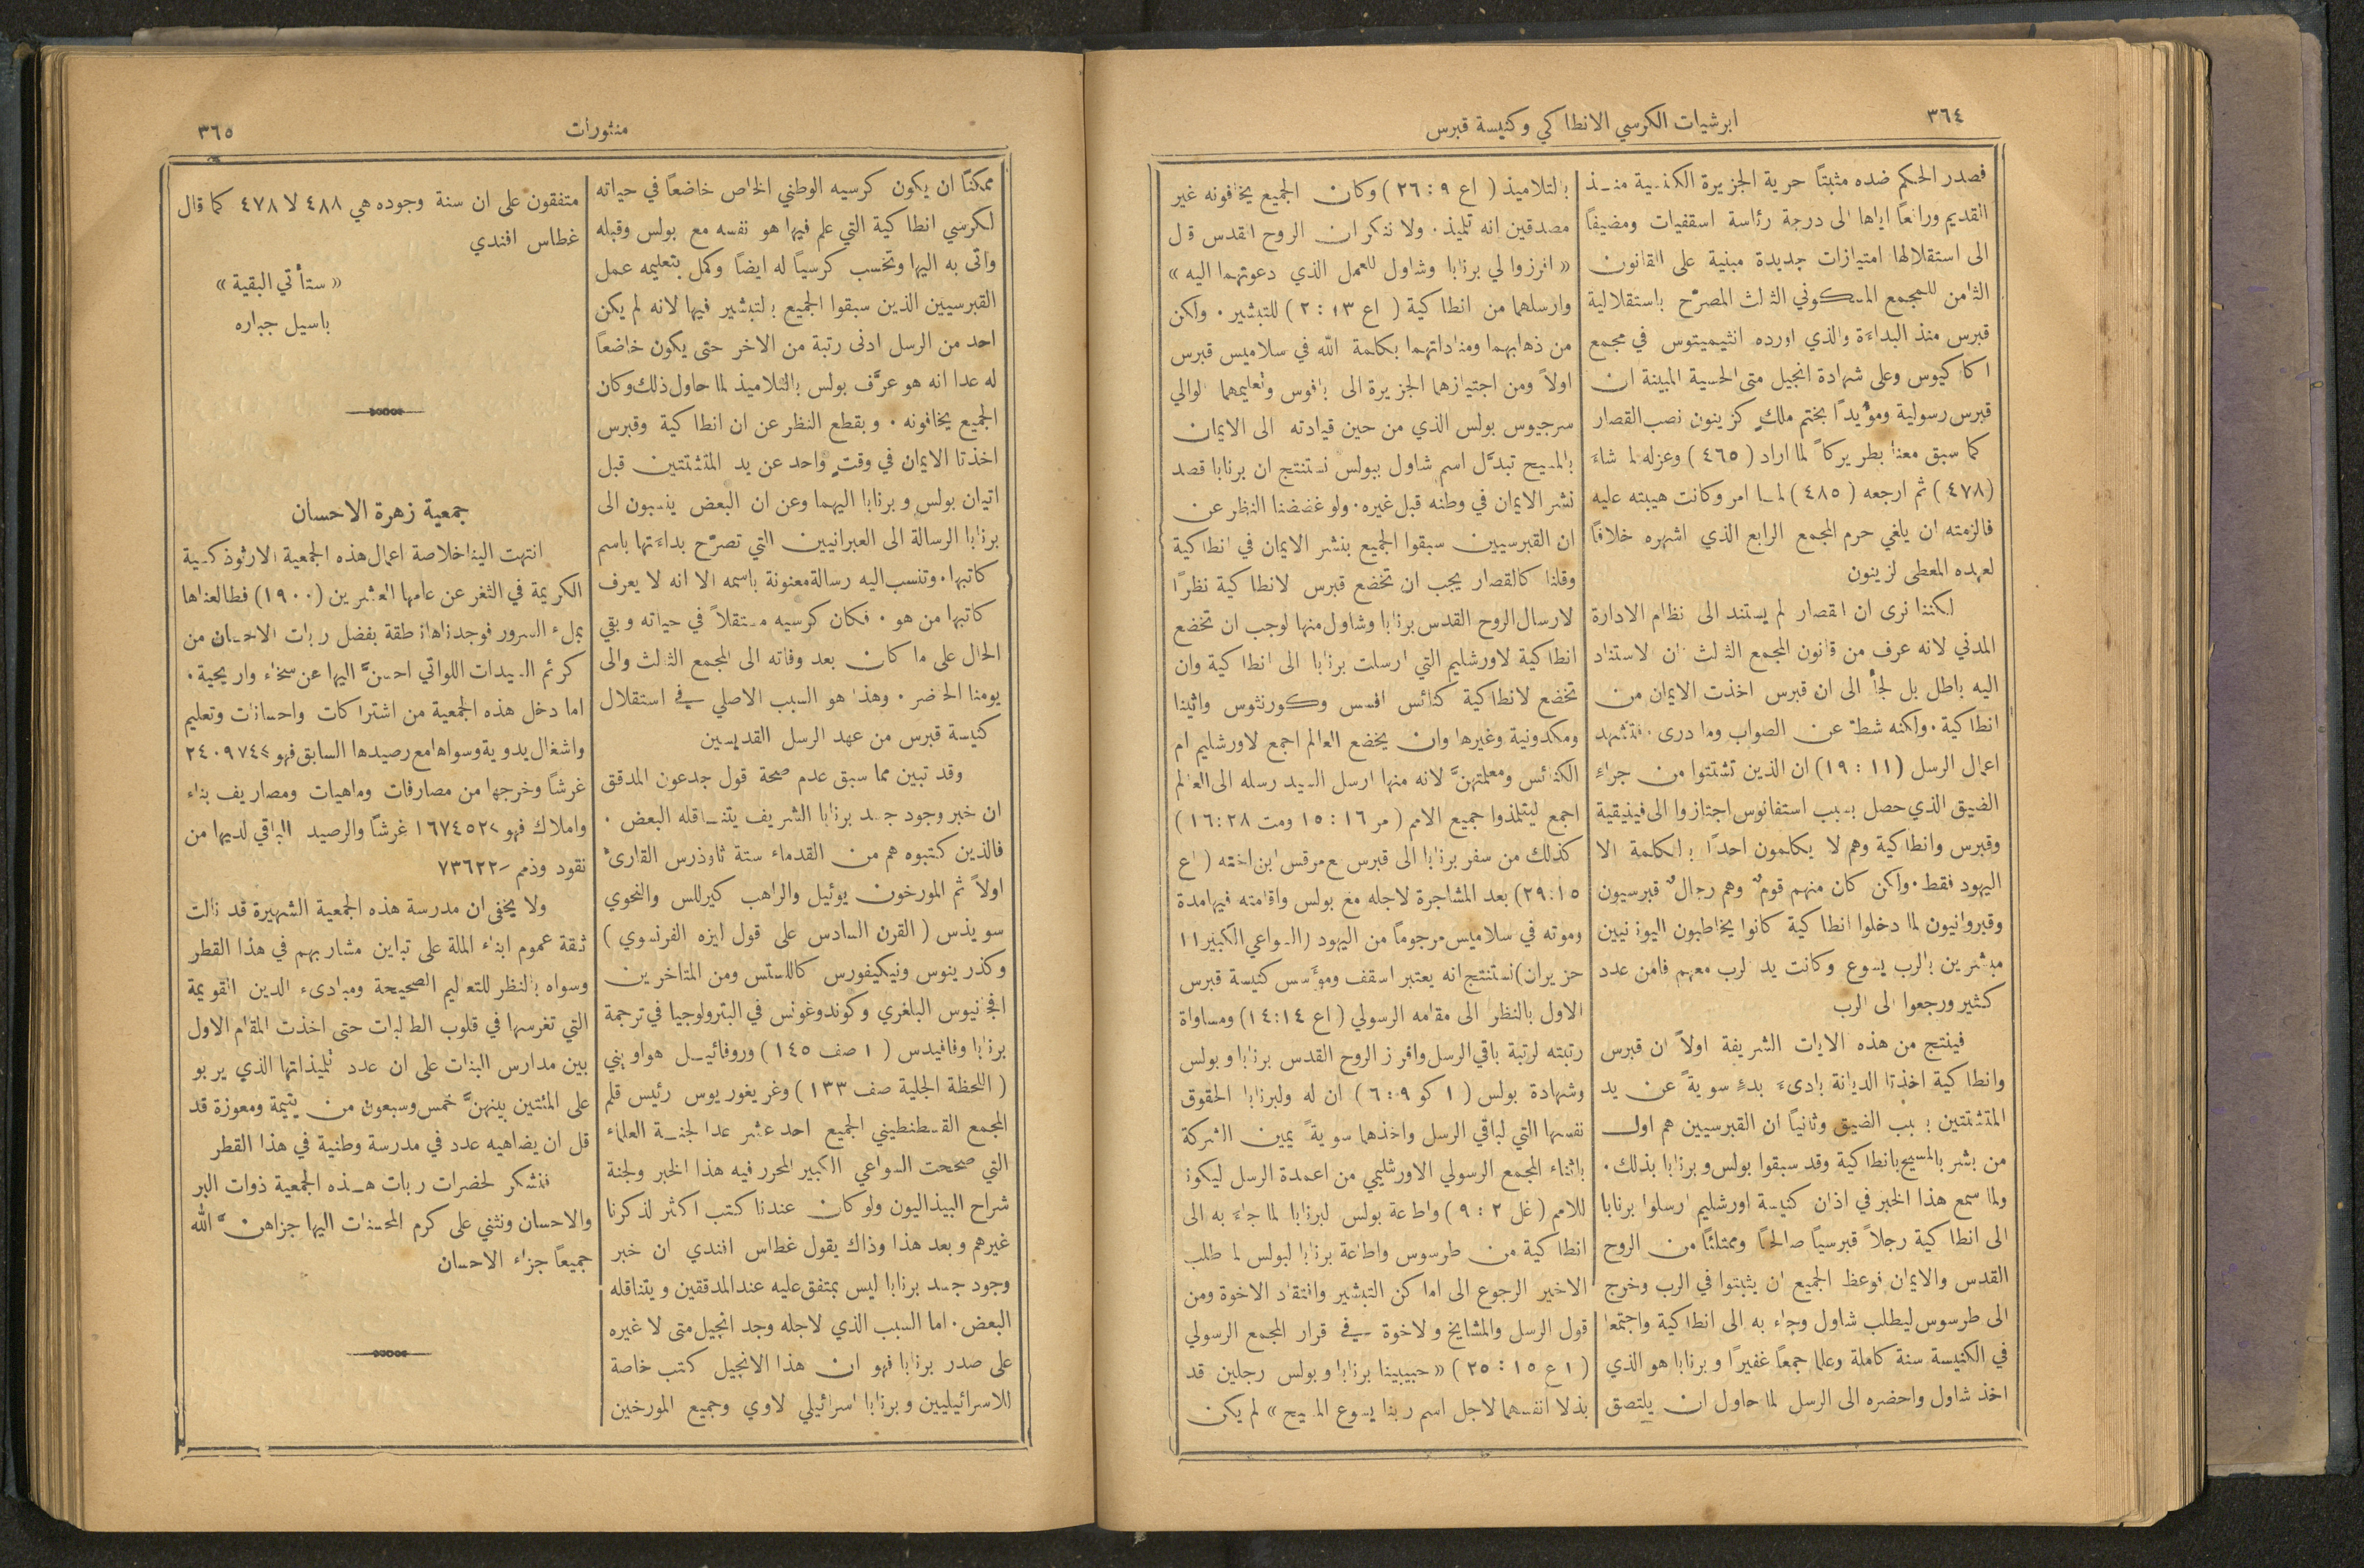 ٣٦٤
ابرشيات الكرسي الانطاكي وكنيسة قبرس
فصدر الحكم ضده مثبتًا حرية الجزيرة الكنسية منذ
القديم ورافعًا اياها الى درجة رئاسة اسقفيات ومضيفًا
الى استقلالها امتيازات جديدة مبنية على القانون
الثامن للمجمع المسكوني الثالث المصرّح باستقلالية
قبرس منذ البداءة والذي اورده انثيميتوس في مجمع
اكاكيوس وعلى شهادة انجيل متى الحسية المبينة ان
قبرس رسولية ومؤيدًا بختم ملكٍ كزينون نصب القصار
كما سبق معنا بطريركًا لما اراد (٤٦٥) وعزله لما شاء
(٤٧٨) ثم ارجعه (٤٨٥) لما امر وكانت هيبته عليه
فالزمته ان يلغي حرم المجمع الرابع الذي اشهره خلافًا
لعهده المعطى لزينون
لكننا نرى ان القصار لم يستند الى نظام الادارة
المدني لانه عرف من قانون المجمع الثالث ان الاستناد
اليه باطل بل لجأ الى ان قبرس اخذت الايمان من
انطاكية. ولكنه شطّ عن الصواب وما درى. فتشهد
اعمال الرسل (١١ : ١٩) ان الذين تشتتوا من جراء
الضيق الذي حصل بسبب استفانوس اجتازوا الى فينيقية
وقبرس وانطاكية وهم لا يكلمون احدًا بالكلمة الا
اليهود فقط. ولكن كان منهم قومٌ وهم رجالٌ قبرسيون
وقيروانيون لما دخلوا انطاكية كانوا يخاطبون اليونانيين
مبشرين بالرب يسوع وكانت يد الرب معهم فامن عدد
كثير ورجعوا الى الرب
فينتج من هذه الايات الشريفة اولًا ان قبرس
وانطاكية اخذتا الديانة بادىء بدءٍ سويةً عن يد
المتشتتين بسبب الضيق وثانيًا ان القبرسيين هم اول
من بشر بالمسيح بانطاكية وقد سبقوا بولس وبرنابا بذلك.
ولما سمع هذا الخبر في اذان كنيسة اورشليم ارسلوا برنابا
الى انطاكية رجلًا قبرسيًا صالحًا وممتلئًا من الروح
القدس والايمان فوعظ الجميع ان يثبتوا في الرب وخرج
الى طرسوس ليطلب شاول وجاء به الى انطاكية واجتمعا
في الكنيسة سنة كاملة وعلما جمعًا غفيرًا وبرنابا هو الذي
اخذ شاول واحضره الى الرسل لما حاول ان يلتصق
بالتلاميذ ( اع ٩ : ٢٦ ) وكان الجميع يخافونه غير
مصدقين انه تلميذ. ولا ننكر ان الروح القدس قال
« افرزوا لي برنابا وشاول للعمل الذي دعوتهما اليه »
وارسلهما من انطاكية ( اع ١٣ : ٢ ) للتبشير. ولكن
من ذهابهما ومناداتهما بكلمة الله في سلاميس قبرس
اولًا ومن اجتيازهما الجزيرة الى بافوس وتعليمهما الوالي
سرجيوس بولس الذي من حين قيادته الى الايمان
بالمسيح تبدّل اسم شاول ببولس نستنتج ان برنابا قصد
نشر الايمان في وطنه قبل غيره. ولو غضضنا النظر عن
ان القبرسيين سبقوا الجميع بنشر الايمان في انطاكية
وقلنا كالقصار يجب ان تخضع قبرس لانطاكية نظرًا
لارسال الروح القدس برنابا وشاول منها لوجب ان تخضع
انطاكية لاورشليم التي ارسلت برنابا الى انطاكية وان
تخضع لانطاكية كنائس افسس وكورنثوس واثينا
ومكدونية وغيرها وان يخضع العالم اجمع لاورشليم ام
الكنائس ومعلمتهنَّ لانه منها ارسل السيد رسله الى العالم
اجمع ليتلمذوا جميع الامم ( مر ١٦ : ١٥ ومت ٢٨ : ١٦ )
كذلك من سفر برنابا الى قبرس مع مرقس ابن اخته ( اع
١٥:٢٩) بعد المشاجرة لاجله مع بولس واقامته فيها مدة
وموته في سلاميس مرجومًا من اليهود (السواعي الكبير ١١
حزيران) نستنتج انه يعتبر اسقف ومؤسس كنيسة قبرس
الاول بالنظر الى مقامه الرسولي ( اع ١٤:١٤) ومساواة
رتبته لرتبة باقي الرسل وافراز الروح القدس برنابا وبولس
وشهادة بولس ( ١ كو ٩ : ٦ ) ان له ولبرنابا الحقوق
نفسها التي لباقي الرسل واخذهما سويةً يمين الشركة
باثناء المجمع الرسولي الاورشليمي من اعمدة الرسل ليكونا
للامم ( غل ٢ : ٩ ) واطاعة بولس لبرنابا لما جاء به الى
انطاكية من طرسوس واطاعة برنابا لبولس لما طلب
الاخير الرجوع الى اماكن التبشير وافتقاد الاخوة ومن
قول الرسل والمشايخ والاخوة في قرار المجمع الرسولي
( ا ع ١٥ : ٢٥ ) « حبيبينا برنابا وبولس رجلين قد
بذلا انفسهما لاجل اسم ربنا يسوع المسيح » لم يكن
منثورات
٣٦٥
ممكنًا ان يكون كرسيه الوطني الخاص خاضعًا في حياته
لكرسي انطاكية التي علم فيها هو نفسه مع بولس وقبله
واتى به اليها وتحسب كرسيًا له ايضًا وكمل بتعليمه عمل
القبرسيين الذين سبقوا الجميع بالتبشير فيها لانه لم يكن
احد من الرسل ادنى رتبة من الاخر حتى يكون خاضعًا
له عدا انه هو عرَّف بولس بالتلاميذ لما حاول ذلك وكان
الجميع يخافونه. وبقطع النظر عن ان انطاكية وقبرس
اخذتا الايمان في وقتٍ واحد عن يد المتشتتين قبل
اتيان بولس وبرنابا اليهما وعن ان البعض ينسبون الى
برنابا الرسالة الى العبرانيين التي تصرّح بداءتها باسم
كاتبها. وتنسب اليه رسالة معنونة باسمه الا انه لا يعرف
كاتبها من هو. فكان كرسيه مستقلًا في حياته وبقي
الحال على ما كان بعد وفاته الى المجمع الثالث والى
يومنا الحاضر. وهذا هو السبب الاصلي في استقلال
كنيسة قبرس من عهد الرسل القديسين
وقد تبين مما سبق عدم صحة قول جدعون المدقق
ان خبر وجود جسد برنابا الشريف يتناقله البعض.
فالذين كتبوه هم من القدماء ستة ثاوذرس القارىء
اولًا ثم المورخون يوئيل والراهب كيرللس والنحوي
سويذس ( القرن السادس على قول ايزه الفرنسوي )
وكذرينوس ونيكيفورس كاللستس ومن المتاخرين
افجانيوس البلغري وكوندوغونس في البترولوجيا في ترجمة
برنابا وفافيدس ( ١ صف ١٤٥ ) وروفائيل هواويني
( اللحظة الجلية صف ١٣٣ ) وغريغوريوس رئيس قلم
المجمع القسطنطيني الجميع احد عشر عدا لجنة العلماء
التي صححت السواعي الكبير المحرر فيه هذا الخبر ولجنة
شراح البيذاليون ولو كان عندنا كتب اكثر لذكرنا
غيرهم وبعد هذا وذاك يقول غطاس افندي ان خبر
وجود جسد برنابا ليس بمتفق عليه عند المدققين ويتناقله
البعض. اما السبب الذي لاجله وجد انجيل متى لا غيره
على صدر برنابا فهو ان هذا الانجيل كتب خاصة
للاسرائيليين وبرنابا اسرائيلي لاوي وجميع المورخين
متفقون على ان سنة وجوده هي ٤٨٨ لا ٤٧٨ كما قال
غطاس افندي
« ستأتي البقية »
باسيل جباره
جمعية زهرة الاحسان
انتهت الينا خلاصة اعمال هذه الجمعية الارثوذكسية
الكريمة في الثغر عن عامها العشرين (١٩٠٠) فطالعناها
بملء السرور فوجدناها ناطقة بفضل ربات الاحسان من
كرائم السيدات اللواتي احسنَّ اليها عن سخاء واريحية.
اما دخل هذه الجمعية من اشتراكات واحسانات وتعليم
واشغال يدوية وسواها مع رصيدها السابق فهو ٢٤٠٩٧٤
غرشًا وخرجها من مصارفات وماهيات ومصاريف بناء
واملاك فهو ١٦٧٤٥٢ غرشًا والرصيد الباقي لديها من
نقود وذمم ٧٣٦٢٢
ولا يخفى ان مدرسة هذه الجمعية الشهيرة قد نالت
ثقة عموم ابناء الملة على تباين مشاربهم في هذا القطر
وسواه بالنظر للتعاليم الصحيحة ومبادىء الدين القويمة
التي تغرسها في قلوب الطالبات حتى اخذت المقام الاول
بين مدارس البنات على ان عدد تلميذاتها الذي يربو
على المئتين بينهنَّ خمس وسبعون من يتيمة ومعوزة قد
قل ان يضاهيه عدد في مدرسة وطنية في هذا القطر
فنشكر لحضرات ربات هذه الجمعية ذوات البر
والاحسان ونثني على كرم المحسنات اليها جزاهنَّ الله
جميعًا جزاء الاحسان